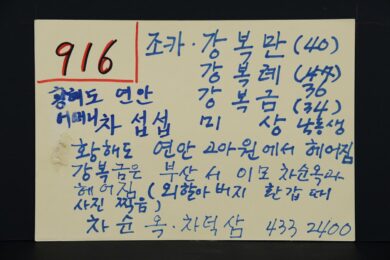 916
조카·강복만(40)
강복례(47)
36
황해도 연안 강복금(34)
어머니 차섭섭 미상 남동생
황해도 연안 고아원에서 헤어짐
강복금은 부산서 이모 차순옥과
헤어짐(외할아버지 환갑 때
사진 찍음)
차순옥·차덕삼 433 2400